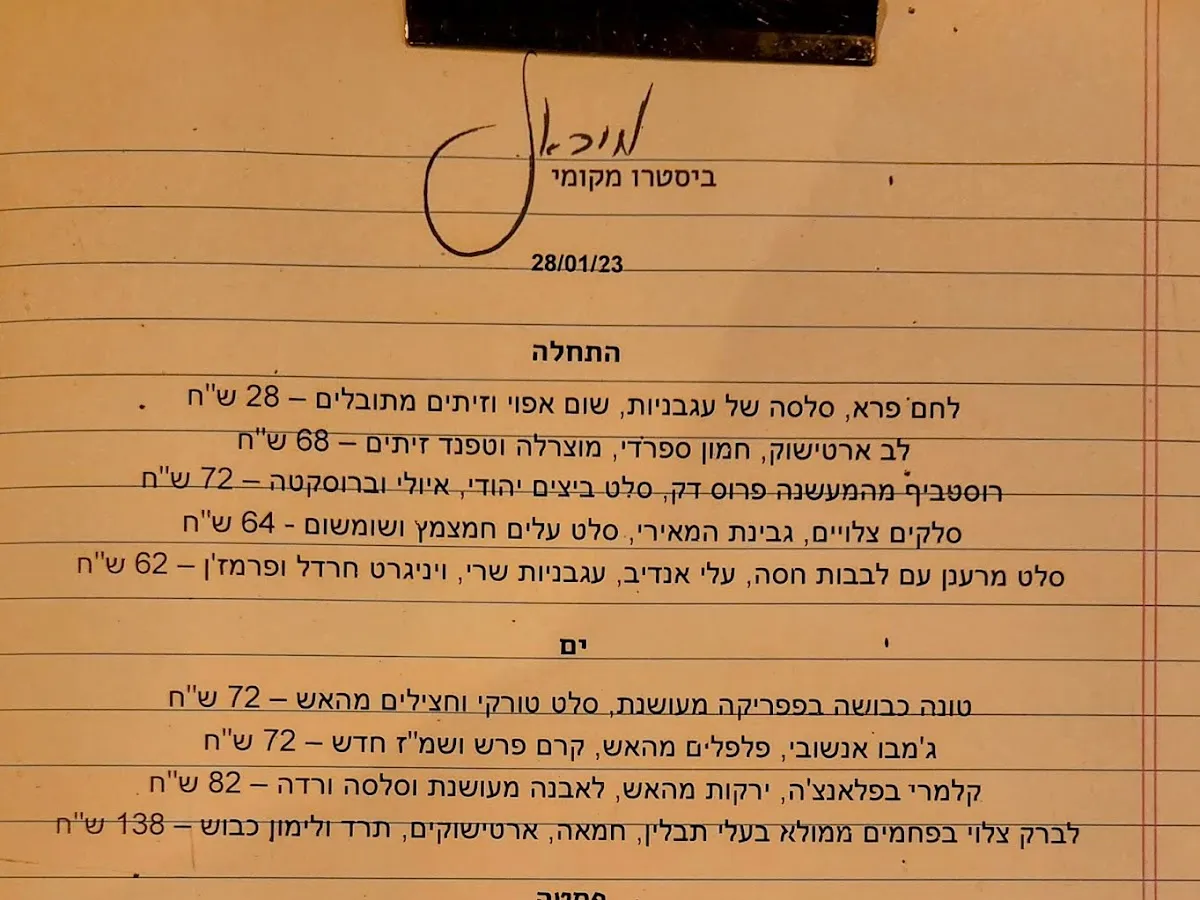 מיכאל
ביסטרו מקומי
28/01/23
התחלה
לחם פרא, סלסה של עגבניות, שום אפוי וזיתים מתובלים – 28 ש"ח
לב ארטישוק, חמון ספרדי, מוצרלה וטפנד זיתים – 68 ש"ח
רוסטביף מהמעשנה פרוס דק, סלט ביצים יהודי, איולי וברוסקטה – 72 ש"ח
סלקים צלויים, גבינת המאירי, סלט עלים חמצמץ ושומשום - 64 ש"ח
סלט מרענן עם לבבות חסה, עלי אנדיב, עגבניות שרי, ויניגרט חרדל ופרמז'ן – 62 ש"ח
ים
טונה כבושה בפפריקה מעושנת, סלט טורקי וחצילים מהאש – 72 ש"ח
ג'מבו אנשובי, פלפלים מהאש, קרם פרש ושמ"ז חדש – 72 ש"ח
קלמרי בפלאנצ'ה, ירקות מהאש, לאבנה מעושנת וסלסה ורדה – 82 ש"ח
לברק צלוי בפחמים ממולא בעלי תבלין, חמאה, ארטישוקים, תרד ולימון כבוש – 138 ש"ח